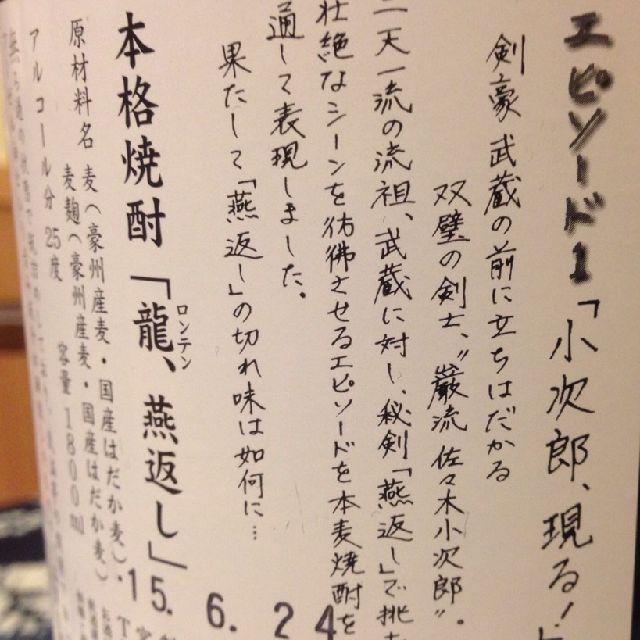 エピソード1「小次郎、現る!」
剣豪 武蔵の前に立ちはだかる
双璧の剣士、〝巌流 佐々木小次郎〟。
二天一流の流祖、武蔵に対し、秘剣「燕返し」で挑む
壮絶なシーンを彷彿させるエピソードを本麦焼酎を
通して表現しました。
果たして「燕返し」の切れ味は如何に…
本格焼酎「龍、燕返し」
ロンテン
原材料名 麦(豪州産麦・国産はだか麦)、
麦麹(豪州産麦・国産はだか麦)
アルコール分 25度 容量 1800ml
15. 6. 24